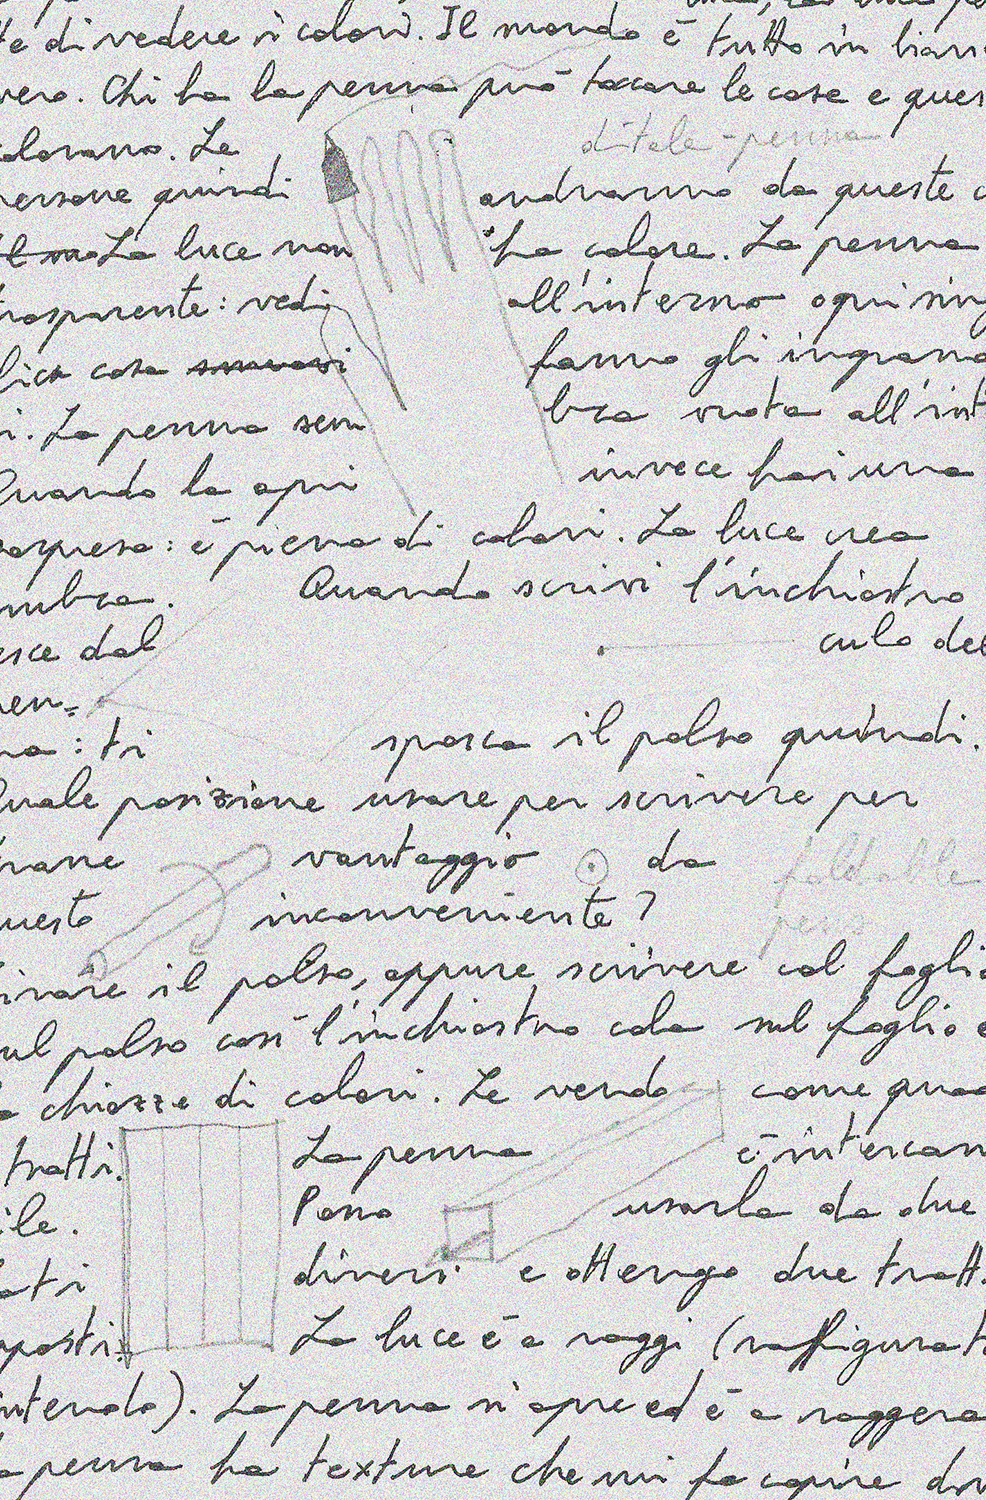 te di vedere i colori. Il mondo è tutto in bian
vero. Chi ha la penna può toccare le cose e ques
colorano. Le
ditale-penna
persone quindi andranno da queste
La luce non ha colore. La penna
trasparente: vedi all'interno ogni sing
cosa fanno gli ingrana
i. La penna sem bra vuota all'int
Quando la apri invece hai una
sorpresa: è piena di colori. La luce crea
ombra. Quando scrivi l'inchiostro
esce dal culo del
pen=
na: ti sporca il polso quindi.
Quale posizione usare per scrivere per
trarre vantaggio da
foldable
questo inconveniente?
pens
il polso, oppure scrivere col foglio
sul polso così l'inchiostro cola sul foglio e
chiazze di colori. Le vendo come quad
tratti. La penna è intercam
ile. Posso usarla da due
lati diversi e ottengo due tratt
opposti. La luce è a raggi (raffigurat
intendo). La penna si apre ed è a raggera
la penna ha texture che mi fa capire